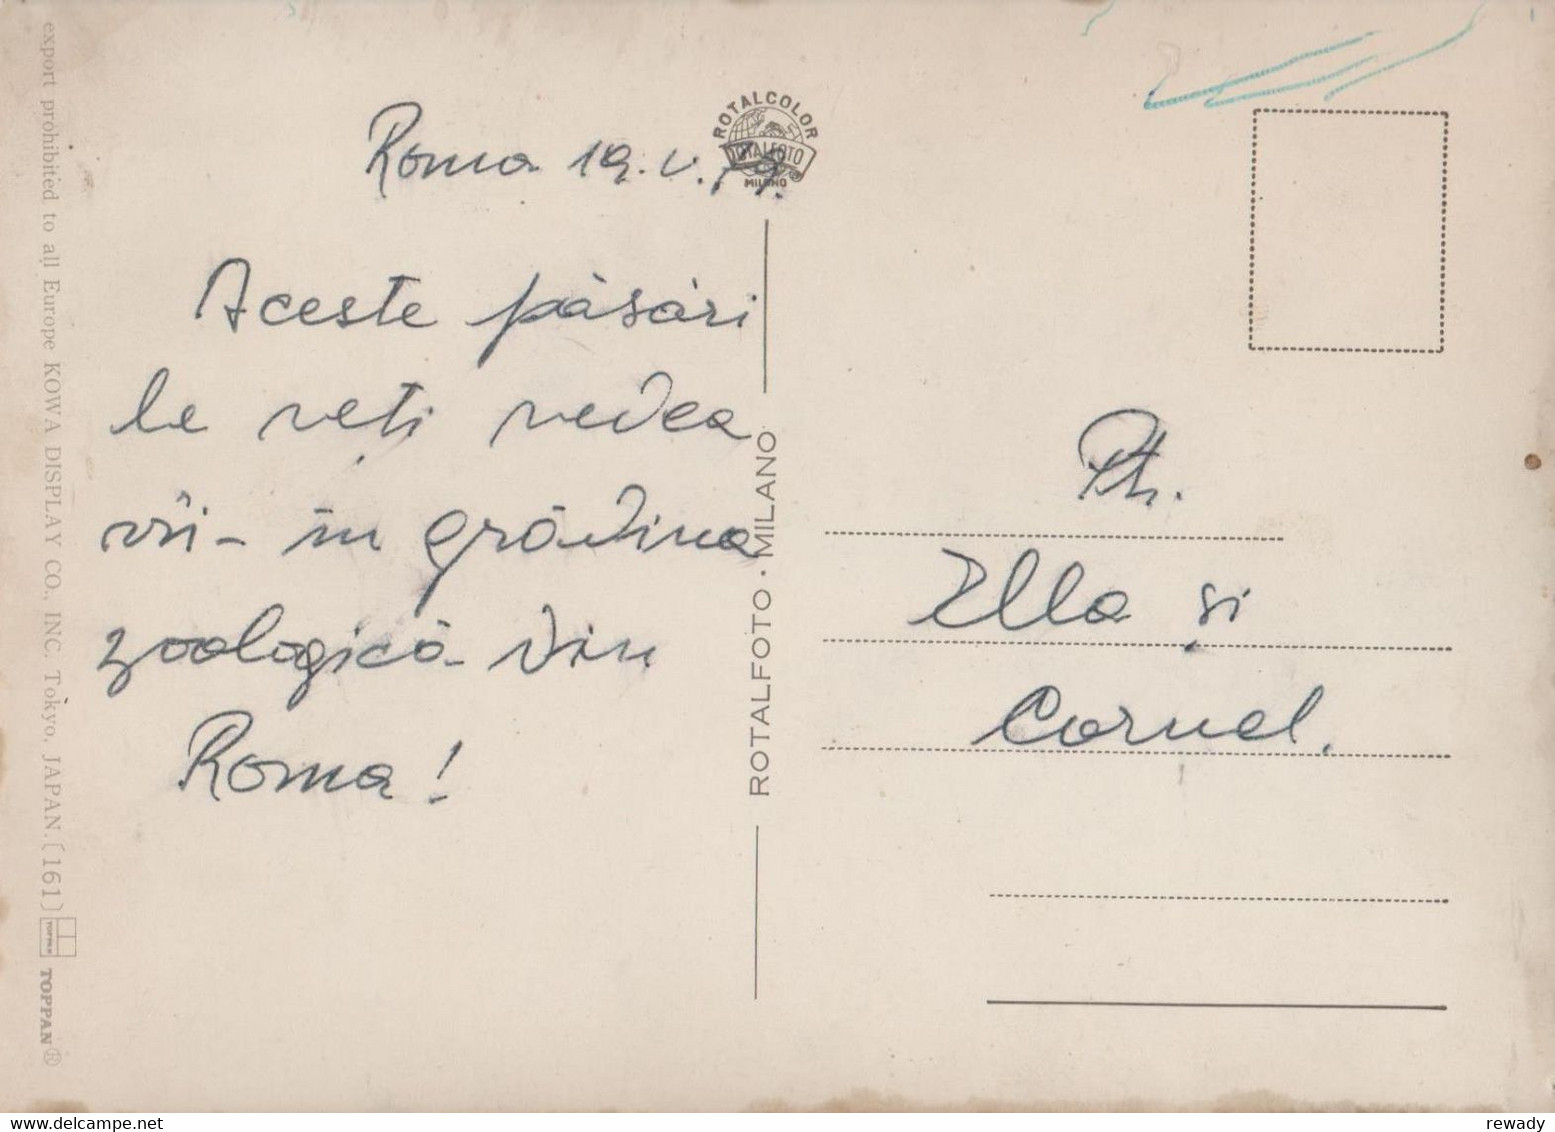 Roma 19.V.79.
Aceste păsări
le veți vedea
în grădina
zoologică din
Roma!
Pt.
Ella și
Cornel.
ROTALCOLOR
ROTALFOTO
MILANO
ROTALFOTO · MILANO
export prohibited to all Europe KOWA DISPLAY CO., INC. Tokyo, JAPAN. [161]
TOPPAN
TOPPAN
rewady